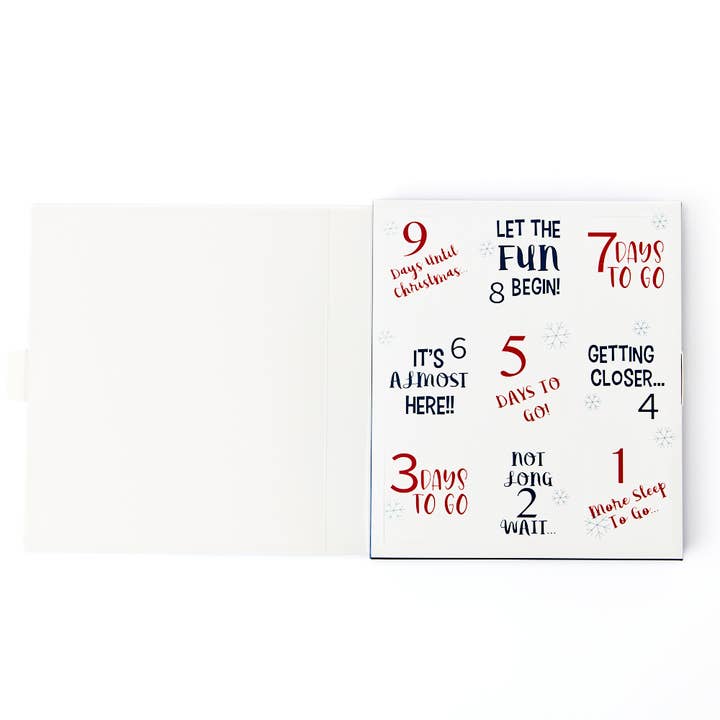 9
Days Until
Christmas...
LET THE
FUN
8 BEGIN!
7 DAYS
TO GO
IT'S 6
ALMOST
HERE!!
5
DAYS TO
GO!
GETTING
CLOSER...
4
3 DAYS
TO GO
NOT
LONG
2
WAIT...
1
More Sleep
To Go...